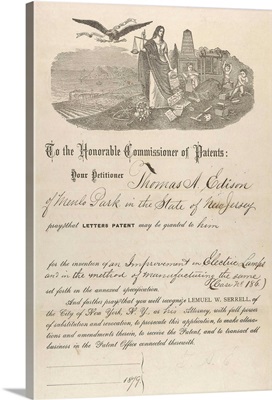 To the Honorable Commissioner of Patents:
Your Petitioner Thomas A. Edison
of Menlo Park in the State of New Jersey
prays that LETTERS PATENT may be granted to him
for the invention of an Improvement in Electric Lamps
and in the method of manufacturing the same
(Case No 186)
set forth in the annexed specification.
And further prays that you will recognize LEMUEL W. SERRELL, of
the City of New York, N. Y., as his Attorney, with full power
of substitution and revocation, to prosecute this application, to make altera-
tions and amendments therein, to receive the Patent, and to transact all
business in the Patent Office connected therewith.
1879